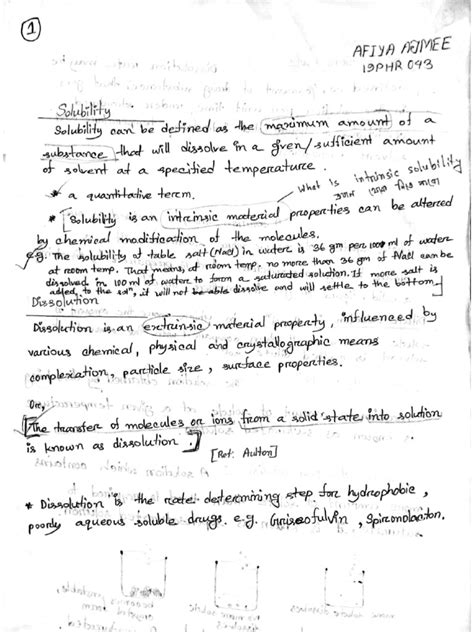 1
AFIYA AJMEE
19PHR 043
Solubility
Solubility can be defined as the maximum amount of a
substance that will dissolve in a given/sufficient amount
of solvent at a specified temperature.
What is intrinsic solubility
* a quantitative term.
* [Solubility is an intrinsic material properties can be altered
by chemical modification of the molecules.
e.g. The solubility of table salt (NaCl) in water is 36 gm per 100 ml of water
at room temp. That means, at room temp. no more than 36 gm of NaCl can be
dissolved in 100 ml of water to form a saturated solution. If more salt is
added to the solⁿ, it will not be able dissolve and will settle to the bottom.
Dissolution
Dissolution is an extrinsic material property, influenced by
various chemical, physical and crystallographic means
complexation, particle size, surface properties.
Or,
[The transfer of molecules or ions from a solid state into solution
is known as dissolution.]
[Ref: Aulton]
* Dissolution is the rate determining step for hydrophobic,
poorly aqueous soluble drugs. e.g. Griseofulvin, Spironolacton.